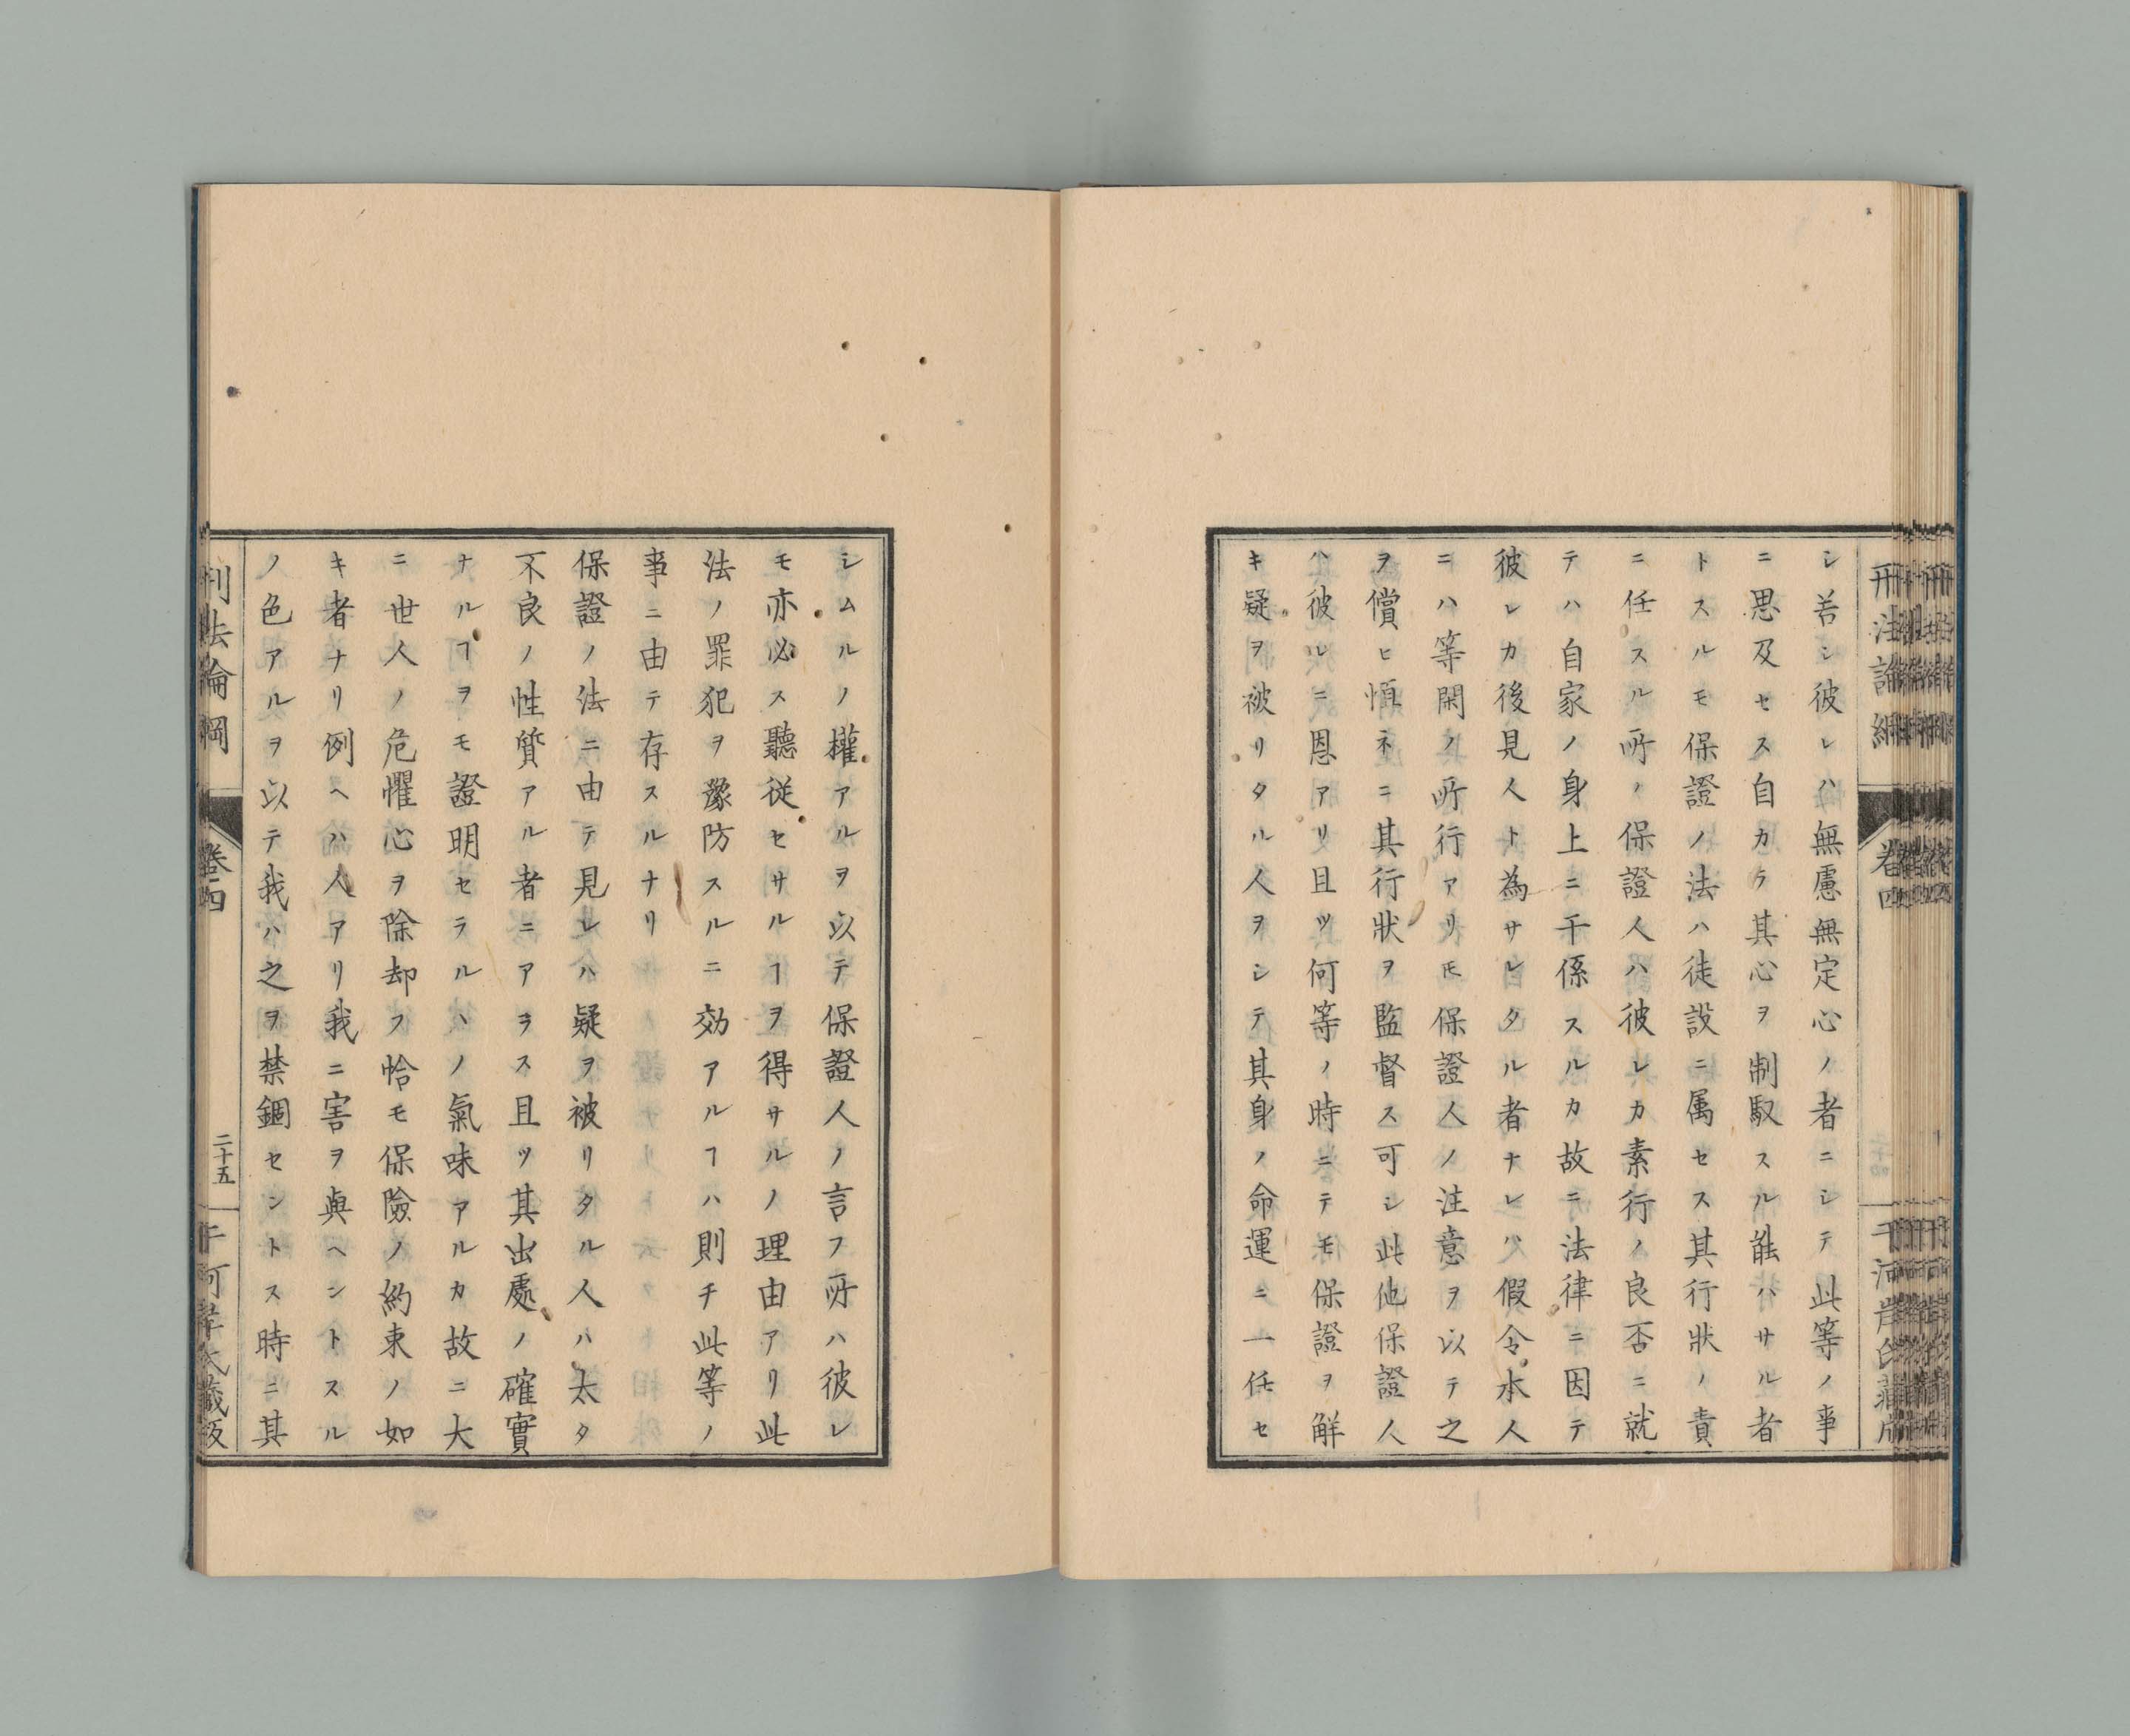 刑法論綱
卷四
シ若シ彼レハ無慮無定心ノ者ニシテ此等ノ事
ニ思及セス自カラ其心ヲ制馭スル能ハサル者
トスルモ保證ノ法ハ徒設ニ属セス其行狀ノ責
ニ任スル所ノ保證人ハ彼レカ素行ノ良否ニ就
テハ自家ノ身上ニ干係スルカ故ニ法律ニ因テ
彼レカ後見人ト為サレタル者ナレハ假令本人
ニハ等閑ノ所行アリ𪜈保證人ノ注意ヲ以テ之
ヲ償ヒ愼ネニ其行狀ヲ監督ス可シ此他保證人
ハ彼レニ恩アリ且ツ何等ノ時ニテモ保證ヲ解
キ疑ヲ被リタル人ヲシテ其身ノ命運ニ一任セ
シムルノ權アルヲ以テ保證人ノ言フ所ハ彼レ
モ亦必ス聽從セサルヿヲ得サルノ理由アリ此
法ノ罪犯ヲ豫防スルニ効アルヿハ則チ此等ノ
事ニ由テ存スルナリ
保證ノ法ニ由テ見レハ疑ヲ被リタル人ハ太タ
不良ノ性質アル者ニアラス且ツ其出處ノ確實
ナルヿヲモ證明セラルヽノ氣味アルカ故ニ大
ニ世人ノ危懼心ヲ除却フ恰モ保險ノ約束ノ如
キ者ナリ例ヘハ人アリ我ニ害ヲ與ヘントスル
ノ色アルヲ以テ我ハ之ヲ禁錮セントス時ニ其
刑法論綱
卷四
二十五
干河岸氏藏版